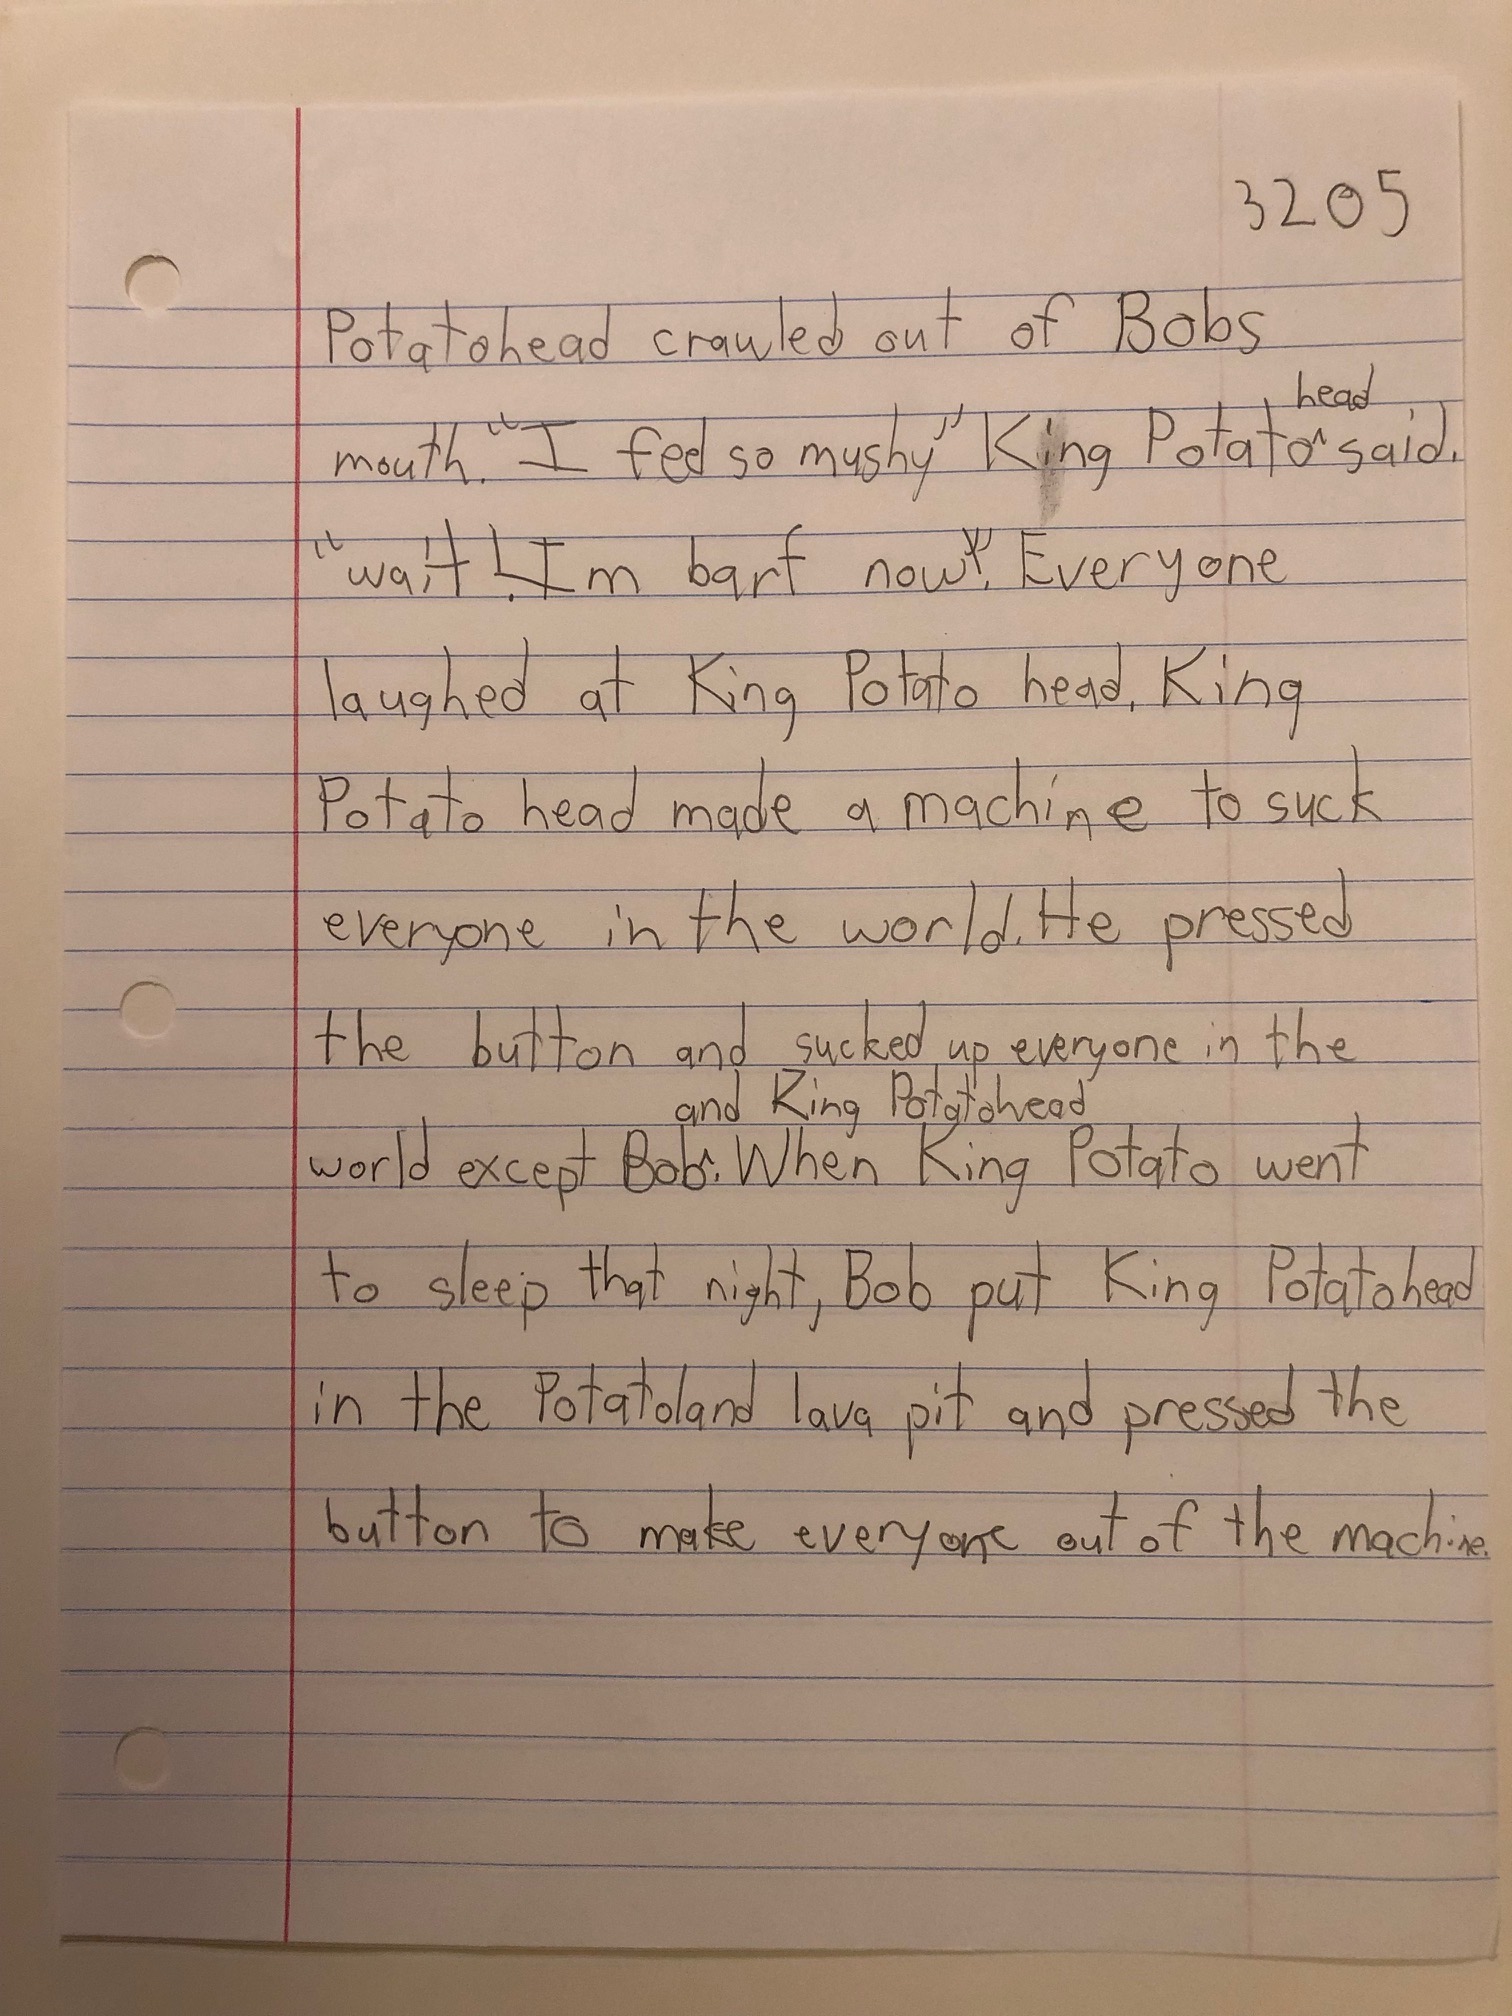 3205
Potatohead crawled out of Bobs
head
mouth. "I feel so mushy" King Potato^ said.
"wait! Im barf now". Everyone
laughed at King Potato head. King
Potato head made a machine to suck
everyone in the world. He pressed
the button and sucked up everyone in the
and King Potatohead
world except Bob^. When King Potato went
to sleep that night, Bob put King Potatohead
in the Potatoland lava pit and pressed the
button to make everyone out of the machine.